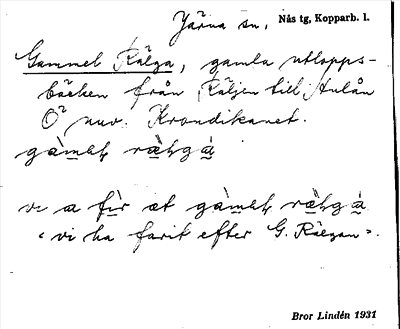 Järna sn. Nås tg, Kopparb. l.
Gammel Rälga, gamla utlopps-
bäcken från Räljen till Hulån
Ö nuv. Krondikanet.
vi a fir æt
"vi ha farit efter G. Rälgan".
Bror Lindén 1931